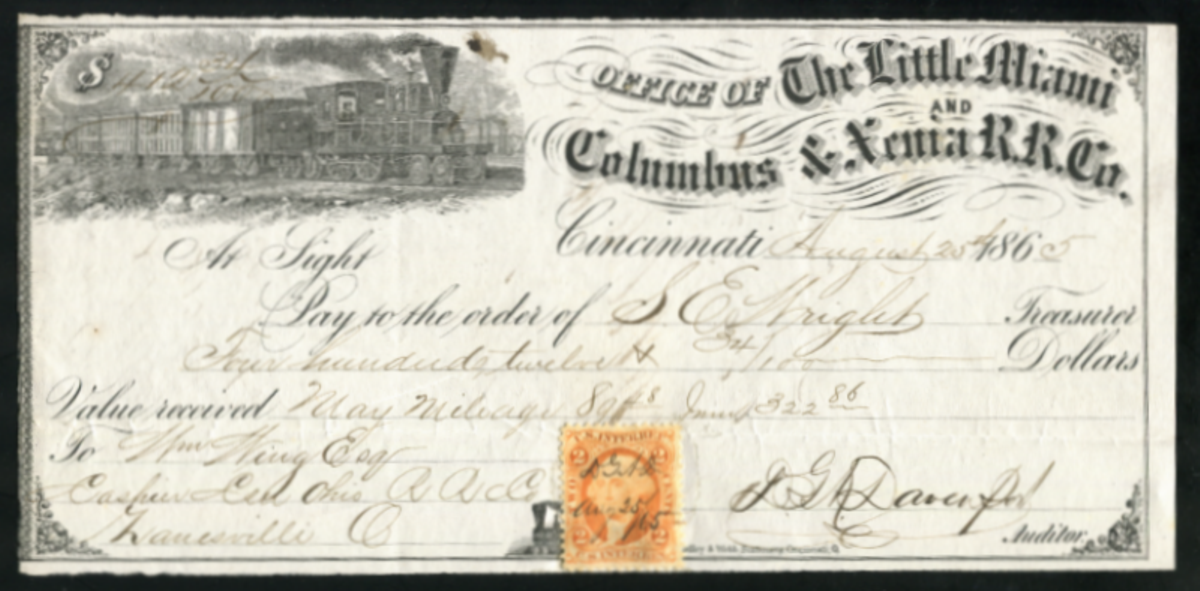 $ 412 34/100
OFFICE OF The Little Miami
AND
Columbus & Xenia R.R. Co.
Cincinnati August 25th 1865
At Sight
Pay to the order of S E Wright Treasurer
Four hundred & twelve & 34/100 Dollars
Value received May Mileage 89 48 June 322 86
To Wm Wing Esq
Cashier Cen Ohio R R Co
Zanesville O
U.S. INTER. RE
2 2
Aug 25/65
2 2
J G Davenport
Auditor
Cincinnati, O.